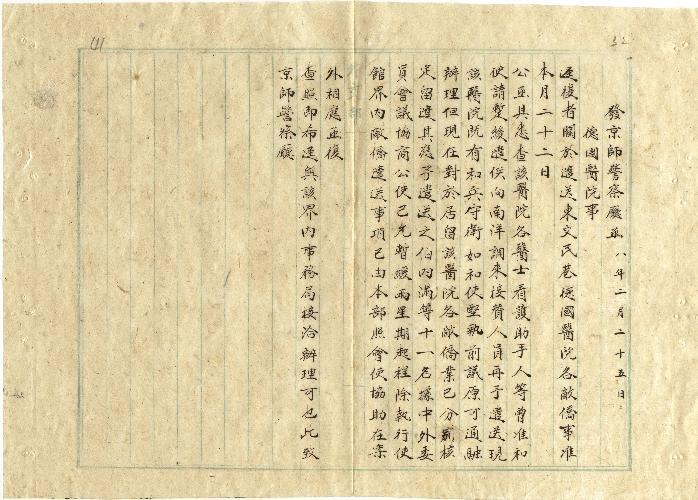 發京師警察廳函 八年二月二十五日
德國醫院事
逕復者關於遣送東交民巷德國醫院各敵僑事准
本月二十二日
公函具悉查該醫院各醫士看護助手人等曾准和
使請暫緩遣俟向南洋調來接替人員再予遣送現
該醫院既有和兵守衛如和使堅執前議原可通融
辦理但現住對於居留該醫院各敵僑業已分別核
定留遣其應予遣送之伯內滿等十一名據中外委
員會議協商公使已允暫緩兩星期起程除執行使
館界內敵僑遣送事項已由本部照會使協助在案
外相應函復
查照即希逕與該界內事務局接洽辦理可也此致
京師警察廳